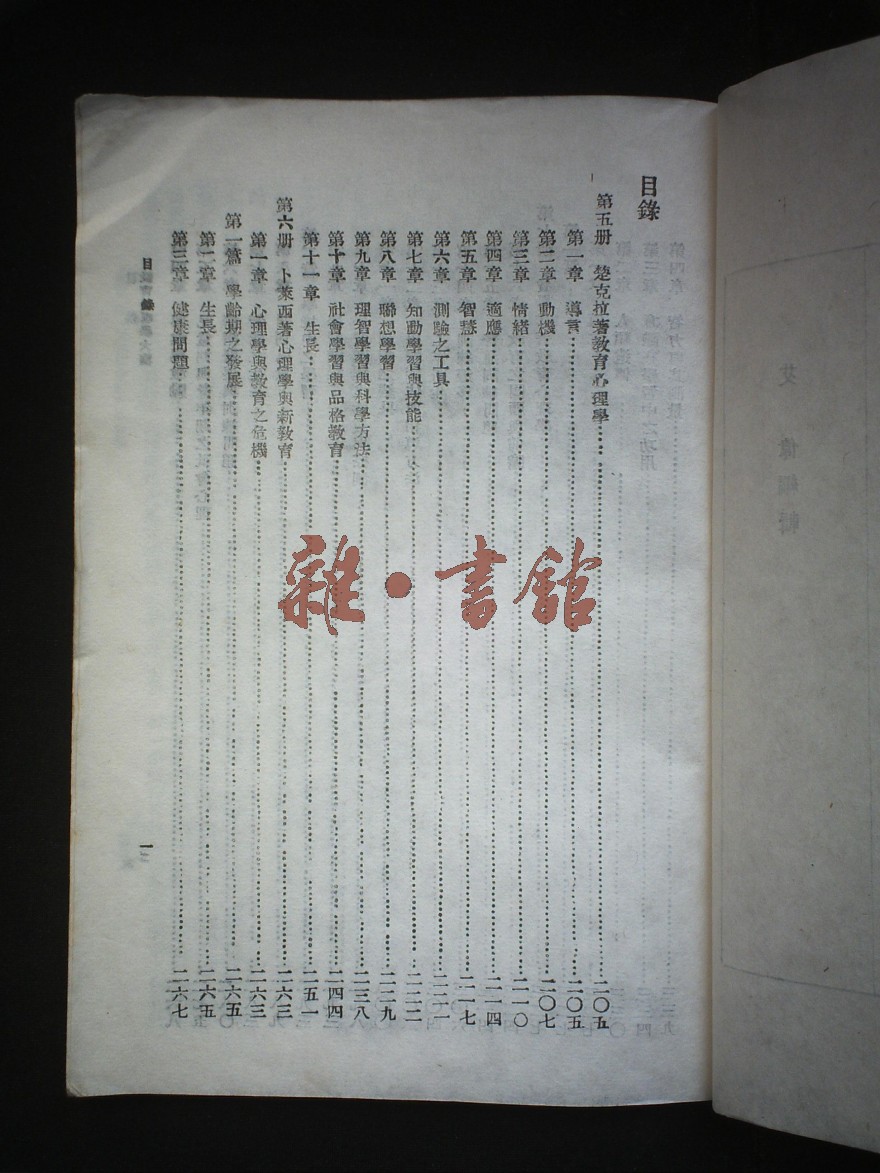 目錄
第五册 楚克拉著教育心理學 二〇五
第一章 導言 二〇五
第二章 動機 二〇七
第三章 情緒 二一〇
第四章 適應 二一四
第五章 智慧 二一七
第六章 測驗之工具 二二一
第七章 知動學習與技能 二二二
第八章 聯想學習 二二九
第九章 理智學習與科學方法 二三八
第十章 社會學習與品格教育 二四四
第十一章 生長 二五一
第六册 卜萊西著心理學與新教育 二六三
第一章 心理學與教育之危機 二六三
第一篇 學齡期之發展 二六五
第二章 生長 二六五
第三章 健康問題 二六七
目錄
一
雜·書館
艾偉編輯